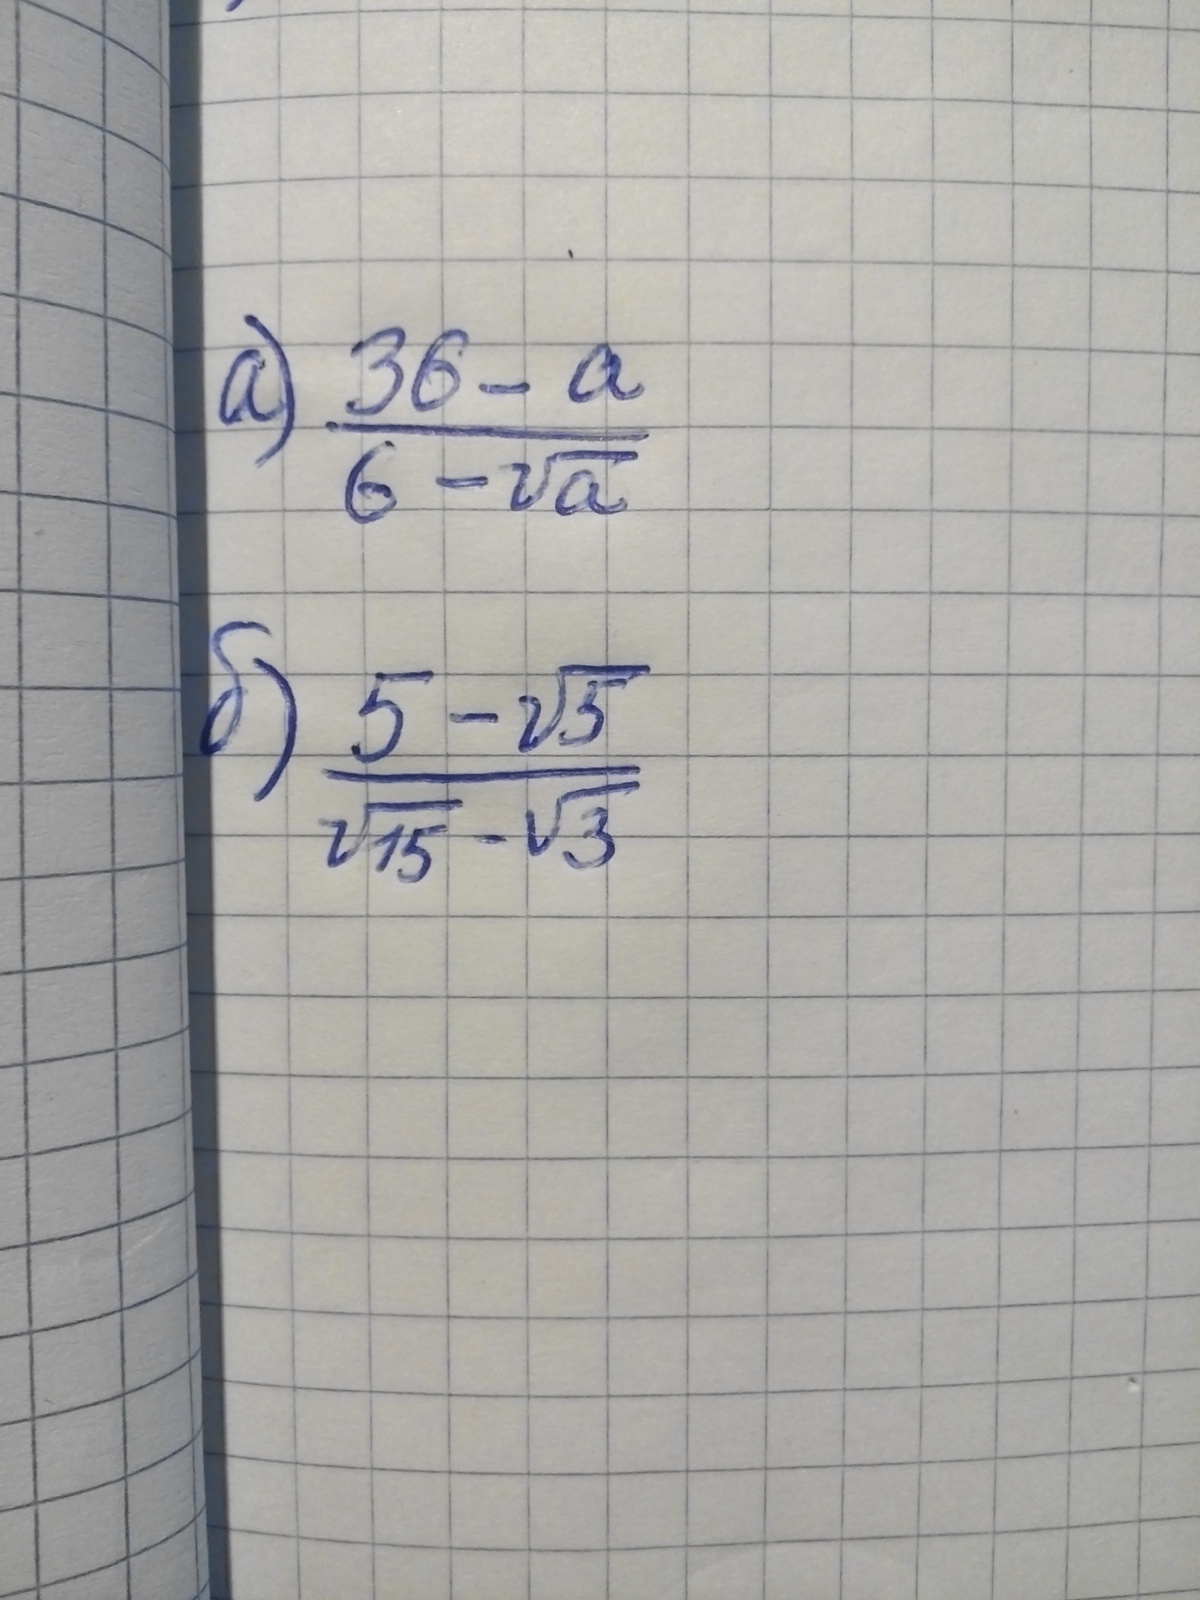 а) 36 - a
6 - √a
б) 5 - √5
√15 - √3